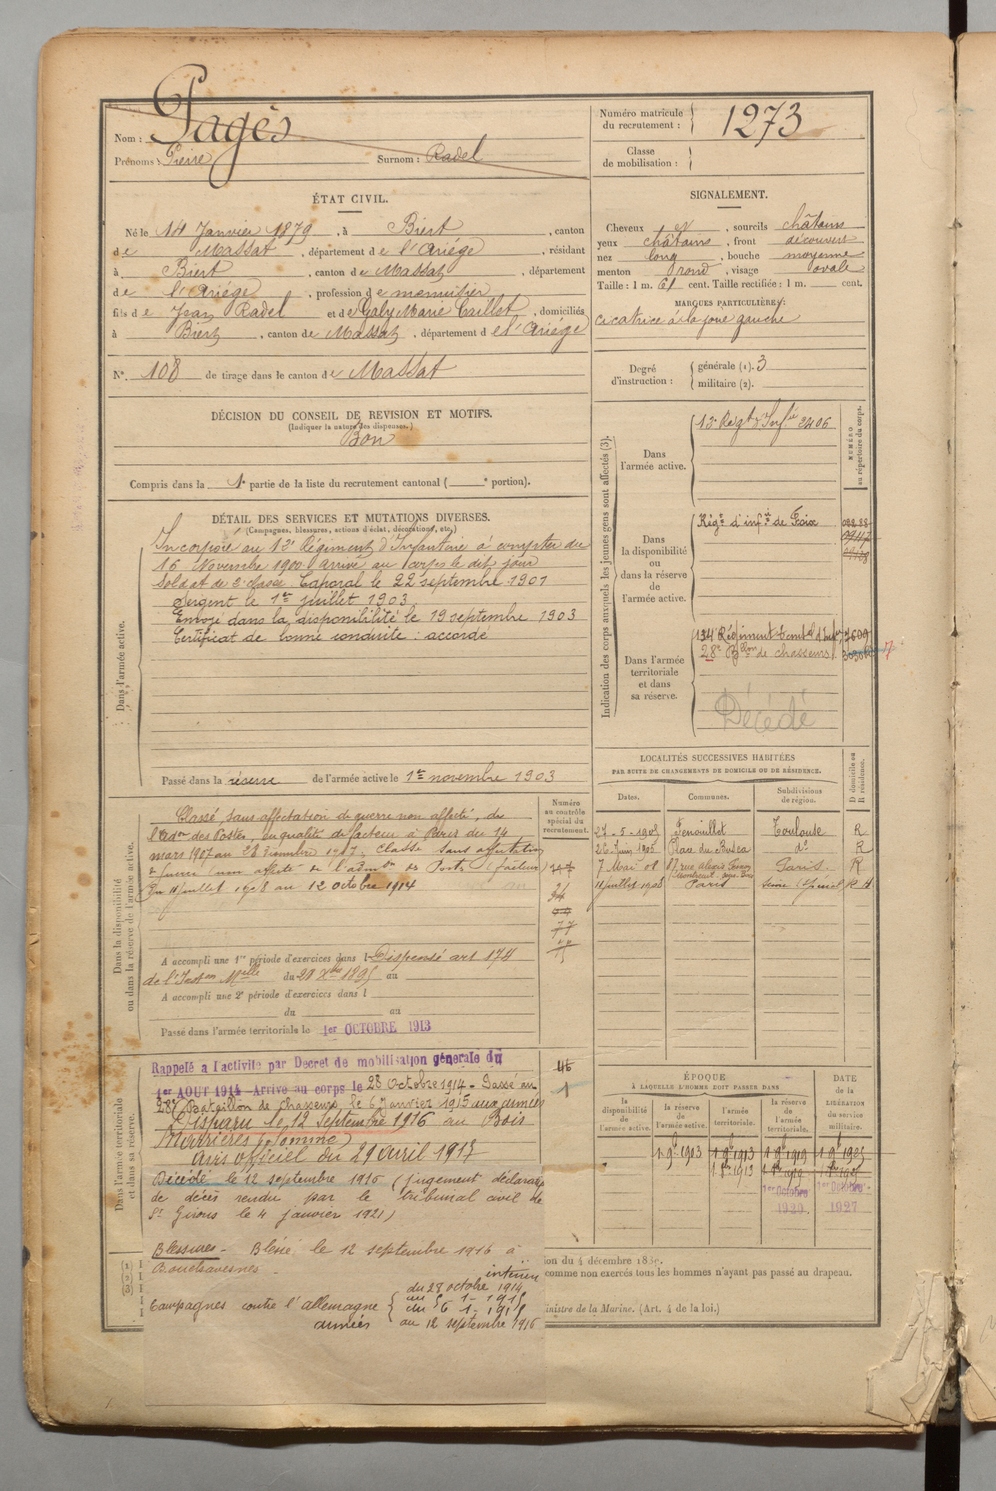 Nom : Pagès
Prénoms : Pierre Surnom : Radel
Numéro matricule
du recrutement : 1273
Classe
de mobilisation :
ÉTAT CIVIL.
Né le 14 Janvier 1879, à Biert, canton
de Massat, département de l'Ariége, résidant
à Biert, canton de Massat, département
de l'Ariége, profession de menuisier
fils de Jean Radel et de Galy Marie Caillet, domiciliés
à Biert, canton de Massat, département de l'Ariége
N°. 108 de tirage dans le canton de Massat
SIGNALEMENT.
Cheveux et, sourcils châtains
yeux châtains, front découvert
nez long, bouche moyenne
menton rond, visage ovale
Taille : 1 m. 61 cent. Taille rectifiée : 1 m. cent.
MARQUES PARTICULIÈRES :
cicatrice à la joue gauche
Degré
d'instruction :
générale (1). 3
militaire (2).
DÉCISION DU CONSEIL DE REVISION ET MOTIFS.
(Indiquer la nature des dispenses.)
Bon
Compris dans la 1e partie de la liste du recrutement cantonal ( e portion).
DÉTAIL DES SERVICES ET MUTATIONS DIVERSES.
(Campagnes, blessures, actions d'éclat, décorations, etc.)
Dans l'armée active.
Incorporé au 13e Régiment d'Infanterie à compter du
16 Novembre 1900. arrivé au corps le dit jour
soldat de 2e classe. Caporal le 22 septembre 1901
Sergent le 1er juillet 1903
Envoyé dans la disponibilité le 19 septembre 1903
Certificat de bonne conduite : accordé
Passé dans la réserve de l'armée active le 1er novembre 1903
Indication des corps auxquels les jeunes gens sont affectés (3).
NUMÉRO
au répertoire du corps.
Dans
l'armée active.
13e Régt d'Infie 2406
Dans
la disponibilité
ou
dans la réserve
de
l'armée active.
Régt d'infie de Foix
Dans l'armée
territoriale
et dans
sa réserve.
134e Régiment territl d'Infie
28e Blon de chasseurs
Décédé
Dans la disponibilité
ou dans la réserve de l'armée active.
Numéro
au contrôle
spécial du
recrutement.
Classé sans affectation de guerre non affecté, de
l'Adon des Postes, en qualité de facteur à Paris du 14
mars 1907 au 28 décembre 1907. Classé sans affectation
de guerre (non affecté) de l'admon des Postes (facteur)
Du 11 juillet 1908 au 12 octobre 1914
A accompli une 1re période d'exercices dans l Dispensé art 174
de l'Inston Melle du 20 Xbre 1895 au
A accompli une 2e période d'exercices dans l
du au
Passé dans l'armée territoriale le 1er OCTOBRE 1913
LOCALITÉS SUCCESSIVES HABITÉES
PAR SUITE DE CHANGEMENTS DE DOMICILE OU DE RÉSIDENCE.
D domicile ou
R résidence.
Dates. Communes. Subdivisions
de région.
27-5-1905 Fenouillet Toulouse R
26 Juin 1905 Place du Busca do R
7 Mai 08 Paris R
11 juillet 1908 Paris
Dans l'armée territoriale
et dans sa réserve.
Rappelé a l'activité par Decret de mobilisation générale du
1er AOUT 1914 Arrivé au corps le 28 Octobre 1914 - Passé au
28e Bataillon de Chasseurs, le 6 Janvier 1915 aux armées
Disparu le 12 septembre 1916 au Bois
Marrières (Somme)
Avis officiel du 29 avril 1917
Décédé le 12 septembre 1916 (jugement déclaratif
de décès rendu par le tribunal civil de
St Girons le 4 janvier 1921)
Blessures - Blessé le 12 septembre 1916 à
Bouchavesnes.
Campagnes contre l'allemagne
intérieur
du 28 octobre 1914
au 5-1-1915
du 6-1-1915
armées au 12 septembre 1916
46
1
ÉPOQUE
À LAQUELLE L'HOMME DOIT PASSER DANS
DATE
de la
LIBÉRATION
du service
militaire.
la
disponibilité
de
l'armée active.
la réserve
de
l'armée active.
l'armée
territoriale.
la réserve
de
l'armée
territoriale.
1 9bre 1903 1 9bre 1913 1 9bre 1919 1 9bre 1925
1er Octobre
1920
1er Octobre
1927
ion du 4 décembre 1889.
comme non exercés tous les hommes n'ayant pas passé au drapeau.
inistre de la Marine. (Art. 4 de la loi.)